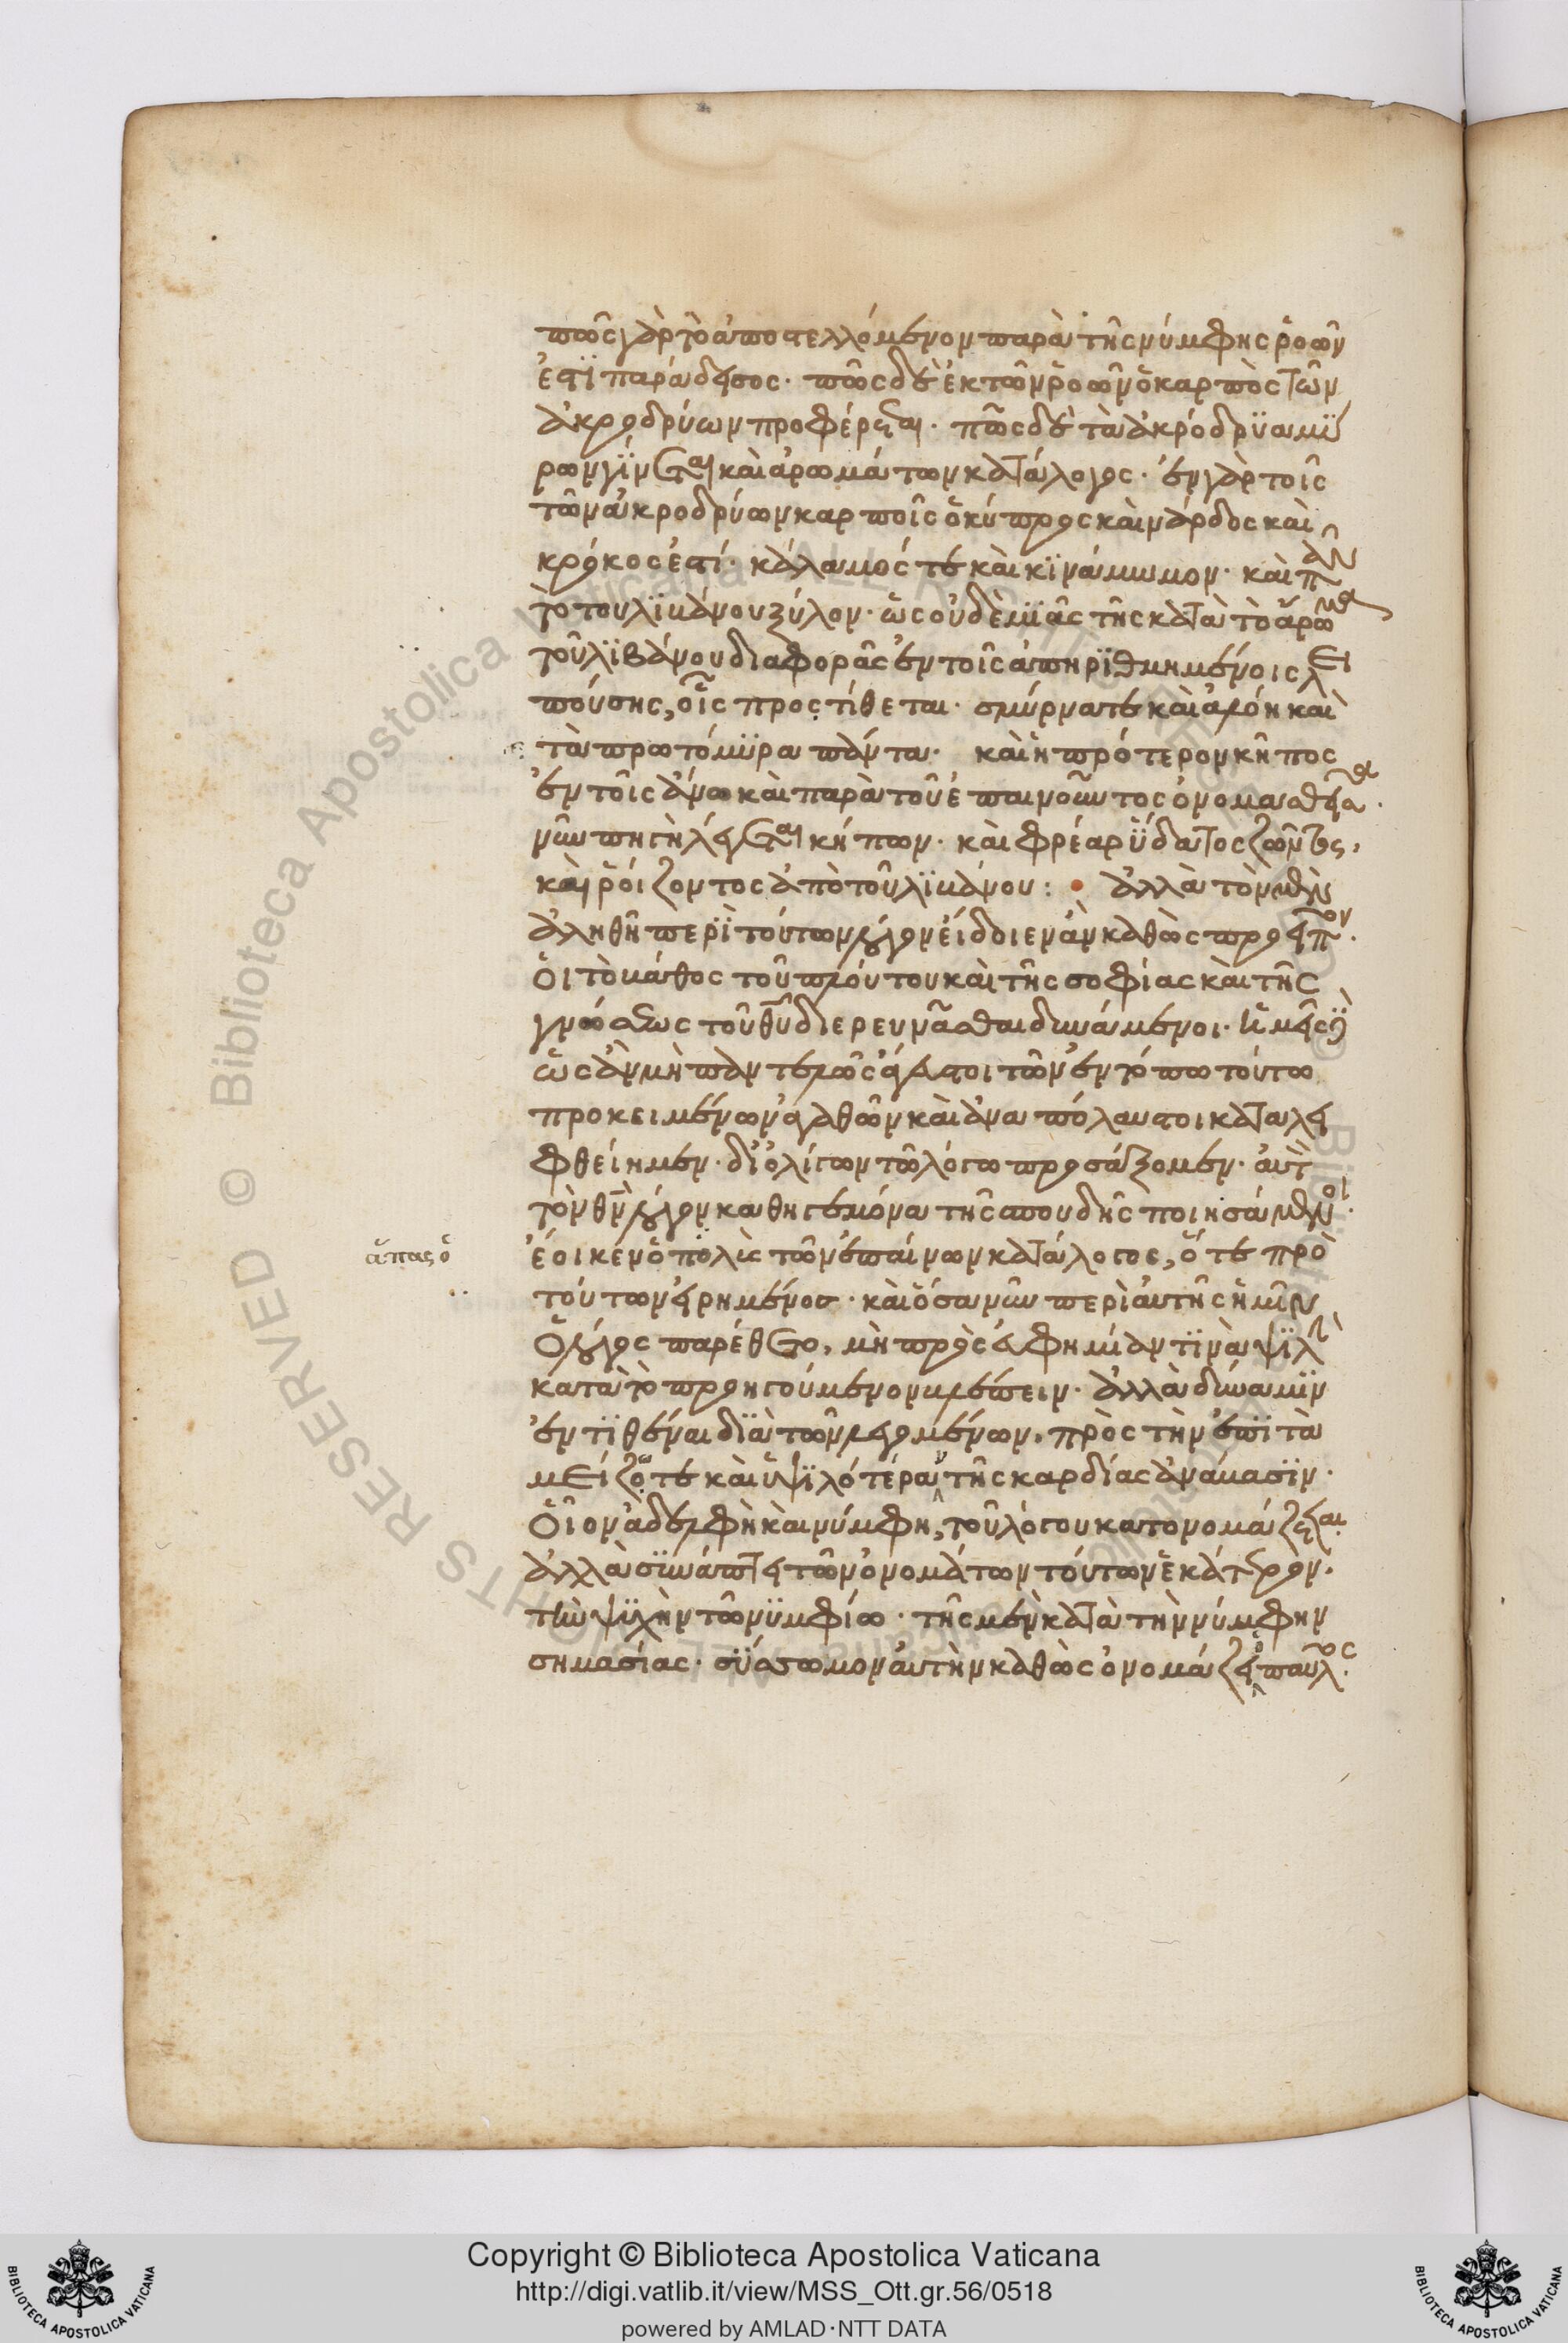 πῶς γὰρ τὸ ἀποστελλόμενον παρὰ τῆς νύμφης ῥοῶν
ἐστὶ παράδεισος· πῶς δὲ ἐκ τῶν ῥοῶν ὁ καρπὸς τῶν
ἀκροδρύων προφέρεται· πῶς δὲ τὰ ἀκρόδρυα μύ
ρων γίνεται καὶ ἀρωμάτων κατάλογος· ἐν γὰρ τοῖς
τῶν ἀκροδρύων καρποῖς ὁ κύπρος καὶ νάρδος καὶ
κρόκος ἐστί· κάλαμός τε καὶ κινάμωμον· καὶ πᾶν
τὸ τοῦ λιβάνου ξύλον· ὡς οὐδὲ μιᾶς τῆς κατὰ τὸ ἄρωμα
τοῦ λιβάνου διαφορᾶς ἐν τοῖς ἀπηριθμημένοις λει
πούσης, οἷς προστίθεται· σμύρνα τε καὶ ἀλόη καὶ
τὰ πρωτόμυρα πάντα· καὶ ἡ πρότερον κῆπος
ἐν τοῖς ἄνω καὶ παρὰ τοῦ ἐπαινοῦντος ὀνομασθεῖσα·
νῦν πηγὴ λέγεται κήπων· καὶ φρέαρ ὕδατος ζῶντος,
καὶ ῥοίζοντος ἀπὸ τοῦ λιβάνου: · ἀλλὰ τὸν μὲν
ἀληθῆ περὶ τούτων λόγον εἰδοῖεν ἂν καθὼς προεῖπον·
οἱ τὸ βάθος τοῦ πλούτου καὶ τῆς σοφίας καὶ τῆς
γνώσεως τοῦ θυ διερευνᾶσθαι δυνάμενοι· ἡμεῖς δὲ
ὡς ἂν μὴ παντελῶς ἄγευστοι τῶν ἐν τόπω τούτω
προκειμένων ἀγαθῶν καὶ ἀναπόλαυστοι καταλει
φθείημεν· δι' ὀλίγων τῶ λόγω προσάξομεν· αὐτὸν
τὸν θν λόγον καθηγεμόνα τῆς σπουδῆς ποιησάμενοι·
ἅπας ὁ
ἔοικεν ὁ πολὺς τῶν ἐπαίνων κατάλογος, ὅ τε πρὸ
τούτων εἰρημένος· καὶ ὅσα νῦν περὶ αὐτῆς ἡμῖν
ὁ λόγος παρέθετο, μὴ πρὸς εὐφημίαν τινὰ ψιλὴν
κατὰ τὸ προηγούμενον βλέπειν· ἀλλὰ δύναμιν
ἐντιθέναι διὰ τῶν λεγομένων, πρὸς τὴν ἐπὶ τὰ
μείζω τε καὶ ὑψιλότερα τῆς καρδίας ἀνάβασιν·
οἷον ἀδελφὴ καὶ νύμφη, τοῦ λόγου κατονομάζεται
ἀλλὰ συνάπτει τῶν ὀνομάτων τούτων ἑκάτερον·
τὴν ψυχὴν τῶ νυμφίω· τῆς μὲν κατὰ τὴν νύμφην
σημασίας· σύσσωμον αὐτὴν καθὼς ὀνομάζει ὁ παῦλος·
Copyright © Biblioteca Apostolica Vaticana
http://digi.vatlib.it/view/MSS_Ott.gr.56/0518
powered by AMLAD·NTT DATA